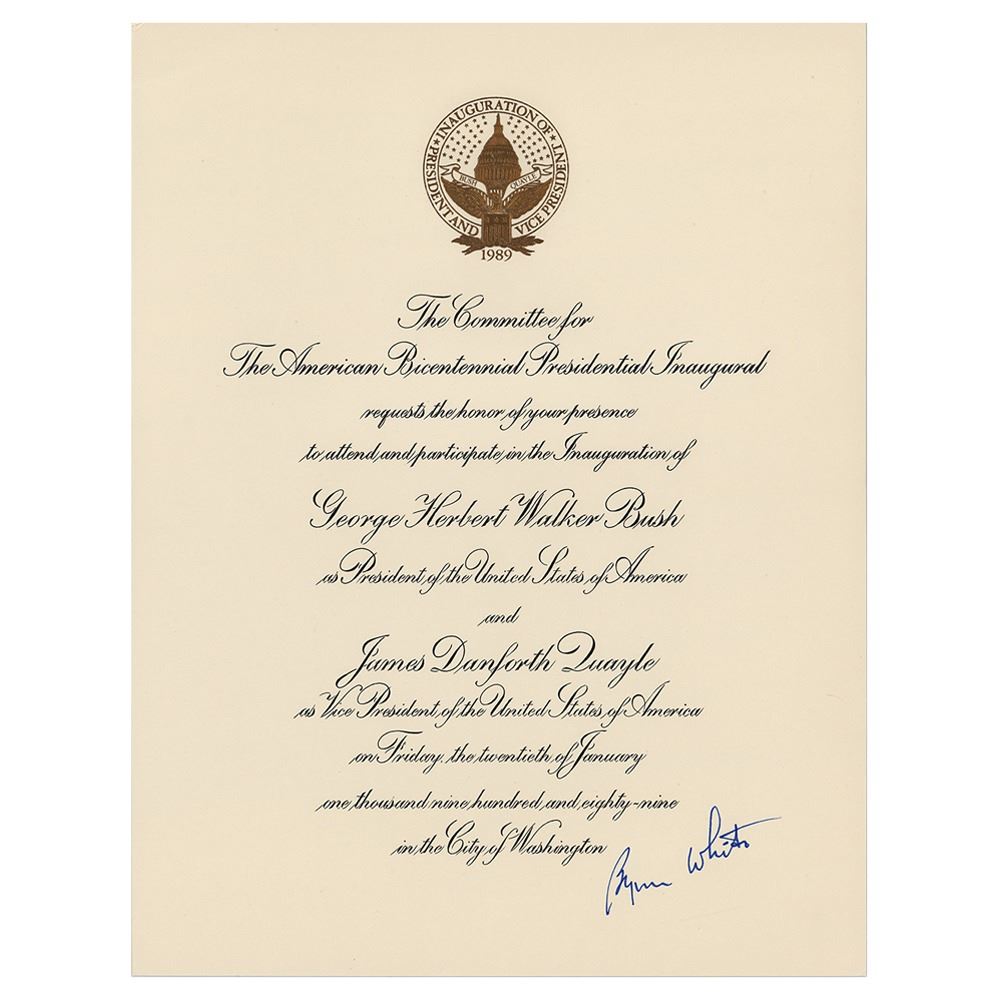 INAUGURATION OF
PRESIDENT AND VICE PRESIDENT
BUSH QUAYLE
1989
The Committee for
The American Bicentennial Presidential Inaugural
requests the honor of your presence
to attend and participate in the Inauguration of
George Herbert Walker Bush
as President of the United States of America
and
James Danforth Quayle
as Vice President of the United States of America
on Friday, the twentieth of January
one thousand nine hundred and eighty-nine
in the City of Washington
Byron White